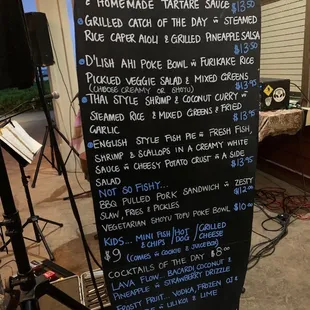 & Homemade Tartare Sauce $13.50
Grilled Catch of the Day w Steamed
Rice Caper Aioli & Grilled Pineapple Salsa
$13.50
D'lish Ahi Poke Bowl w Furikake Rice
Pickled Veggie Salad & Mixed Greens
(Choose Creamy or Shoyu) $13.95
Thai Style Shrimp & Coconut Curry w
Steamed Rice & Mixed Greens & Fried
Garlic $13.50
English Style Fish Pie w Fresh Fish,
Shrimp & Scallops in a Creamy White
Sauce w Cheesy Potato Crust w a Side
Salad $13.95
Not So Fishy...
BBQ Pulled Pork Sandwich w Zesty
Slaw, Fries & Pickles $12.00
Vegetarian Shoyu Tofu Poke Bowl $10.00
Kids... Mini Fish / Hot / Grilled
& Chips / Dog / Cheese
$9 (Comes w Cookie & Juicebox)
Cocktails of the Day $8.00
Lava Flow... Bacardi, Coconut &
Pineapple w Strawberry Drizzle
Frosty Fruit... Vodka, Frozen
w Lilikoi & Lime